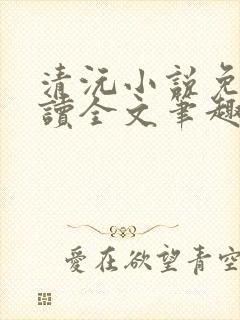 清沅小說免
讀全文筆趣
愛在欲望青空